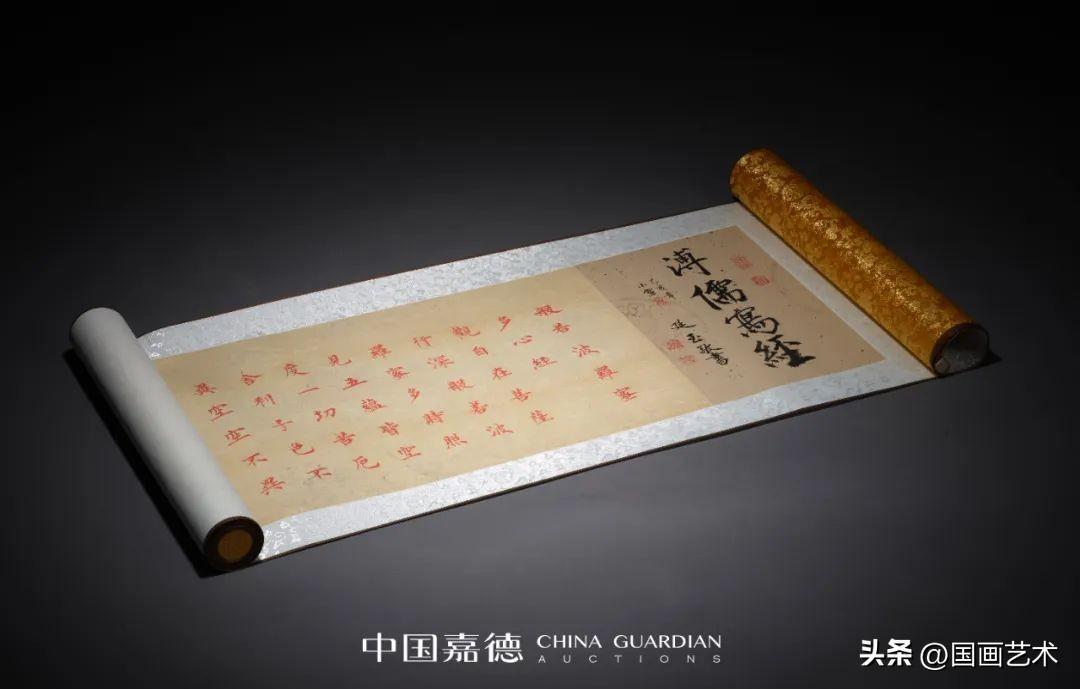 溥儒寫經
般若波羅蜜
多心經
觀自在菩薩
行深般若波
羅蜜多時照
見五蘊皆空
度一切苦厄
舍利子色不
異空空不異
中国嘉德 CHINA GUARDIAN
AUCTIONS
头条 @国画艺术